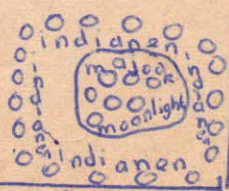 indianen
indianen
indianen
indianen
moonlight